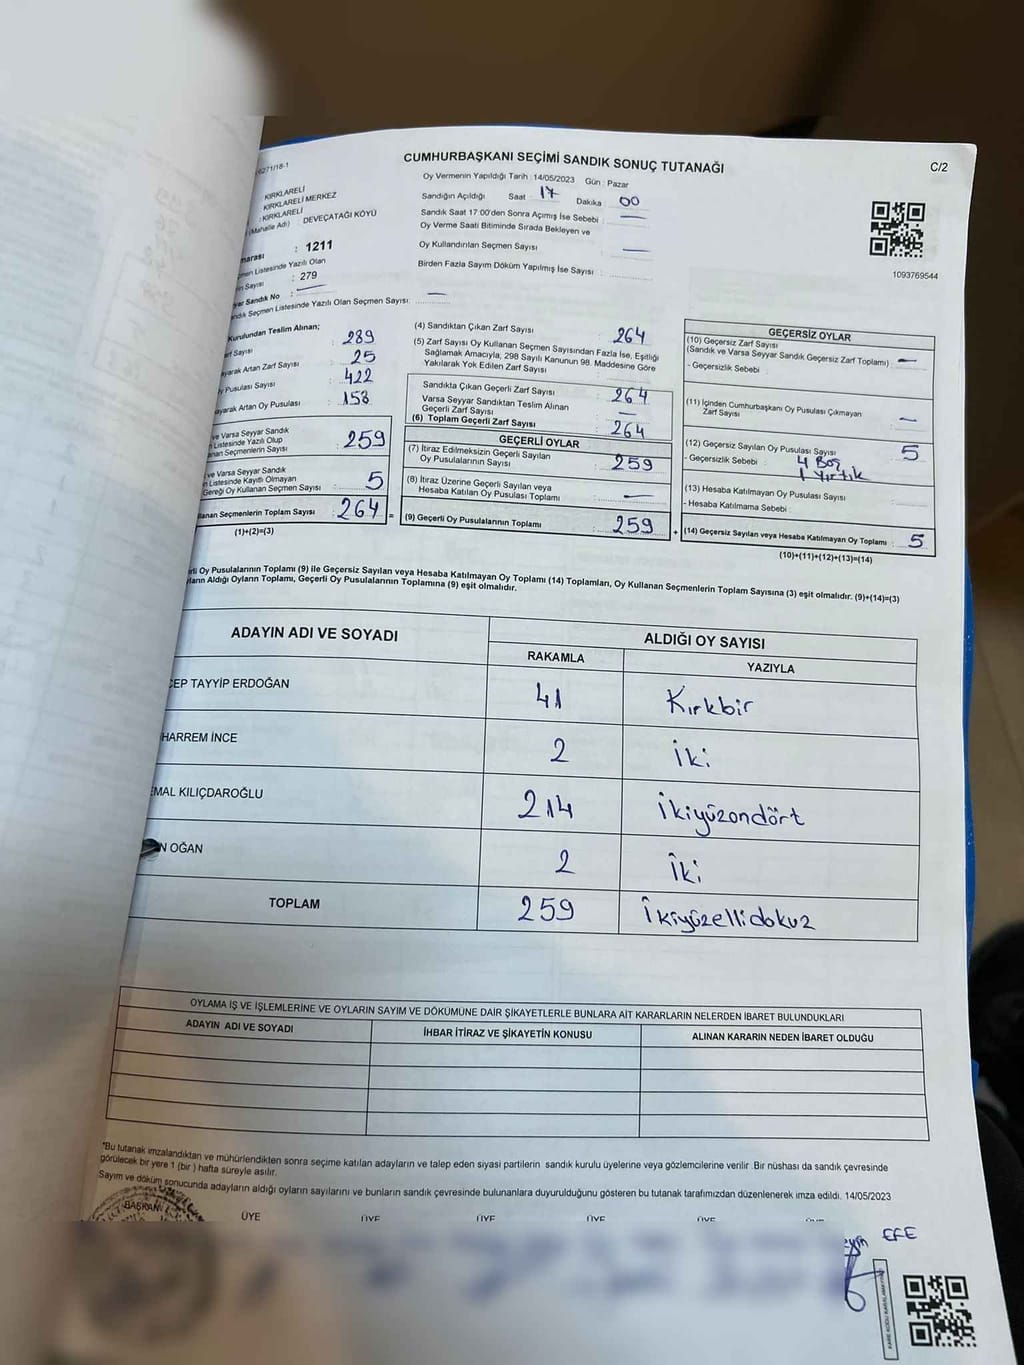 CUMHURBAŞKANI SEÇİMİ SANDIK SONUÇ TUTANAĞI
C/2
6271/18-1
Oy Vermenin Yapıldığı Tarih : 14/05/2023 Gün : Pazar
KIRKLARELİ
KIRKLARELİ MERKEZ
: KIRKLARELİ
(Mahalle Adı) : DEVEÇATAĞI KÖYÜ
Sandığın Açıldığı Saat 17 Dakika 00
Sandık Saat 17:00'den Sonra Açımış İse Sebebi : —
Oy Verme Saati Bitiminde Sırada Bekleyen ve
Oy Kullandırılan Seçmen Sayısı —
Birden Fazla Sayım Döküm Yapılmış İse Sayısı :
1093769544
marası : 1211
men Listesinde Yazılı Olan
n Sayısı : 279
yar Sandık No : —
ndık Seçmen Listesinde Yazılı Olan Seçmen Sayısı: —
Kurulundan Teslim Alınan;
arf Sayısı : 289
ayarak Artan Zarf Sayısı : 25
y Pusulası Sayısı : 422
ayarak Artan Oy Pusulası : 158
ve Varsa Seyyar Sandık
n Listesinde Yazılı Olup
anan Seçmenlerin Sayısı 259
ve Varsa Seyyar Sandık
n Listesinde Kayıtlı Olmayan
Gereği Oy Kullanan Seçmen Sayısı 5
llanan Seçmenlerin Toplam Sayısı : 264 =
(1)+(2)=(3)
(4) Sandıktan Çıkan Zarf Sayısı : 264
(5) Zarf Sayısı Oy Kullanan Seçmen Sayısından Fazla İse, Eşitliği
Sağlamak Amacıyla, 298 Sayılı Kanunun 98. Maddesine Göre
Yakılarak Yok Edilen Zarf Sayısı :
Sandıkta Çıkan Geçerli Zarf Sayısı : 264
Varsa Seyyar Sandıktan Teslim Alınan
Geçerli Zarf Sayısı : —
(6) Toplam Geçerli Zarf Sayısı : 264
GEÇERLİ OYLAR
(7) İtiraz Edilmeksizin Geçerli Sayılan
Oy Pusulalarının Sayısı : 259
(8) İtiraz Üzerine Geçerli Sayılan veya
Hesaba Katılan Oy Pusulası Toplamı : —
(9) Geçerli Oy Pusulalarının Toplamı : 259 +
GEÇERSİZ OYLAR
(10) Geçersiz Zarf Sayısı
(Sandık ve Varsa Seyyar Sandık Geçersiz Zarf Toplamı) : —
- Geçersizlik Sebebi :
(11) İçinden Cumhurbaşkanı Oy Pusulası Çıkmayan
Zarf Sayısı : —
(12) Geçersiz Sayılan Oy Pusulası Sayısı : 5
- Geçersizlik Sebebi : 4 Boş
1 Yırtık
(13) Hesaba Katılmayan Oy Pusulası Sayısı :
- Hesaba Katılmama Sebebi :
(14) Geçersiz Sayılan veya Hesaba Katılmayan Oy Toplamı : 5
(10)+(11)+(12)+(13)=(14)
rli Oy Pusulalarının Toplamı (9) ile Geçersiz Sayılan veya Hesaba Katılmayan Oy Toplamı (14) Toplamları, Oy Kullanan Seçmenlerin Toplam Sayısına (3) eşit olmalıdır. (9)+(14)=(3)
ların Aldığı Oyların Toplamı, Geçerli Oy Pusulalarının Toplamına (9) eşit olmalıdır.
ADAYIN ADI VE SOYADI ALDIĞI OY SAYISI
RAKAMLA YAZIYLA
CEP TAYYİP ERDOĞAN 41 Kırkbir
HARREM İNCE 2 İki
EMAL KILIÇDAROĞLU 214 İkiyüzondört
N OĞAN 2 İki
TOPLAM 259 İkiyüzellidokuz
OYLAMA İŞ VE İŞLEMLERİNE VE OYLARIN SAYIM VE DÖKÜMÜNE DAİR ŞİKAYETLERLE BUNLARA AİT KARARLARIN NELERDEN İBARET BULUNDUKLARI
ADAYIN ADI VE SOYADI İHBAR İTİRAZ VE ŞİKAYETİN KONUSU ALINAN KARARIN NEDEN İBARET OLDUĞU
*Bu tutanak imzalandıktan ve mühürlendikten sonra seçime katılan adayların ve talep eden siyasi partilerin sandık kurulu üyelerine veya gözlemcilerine verilir. Bir nüshası da sandık çevresinde
görülecek bir yere 1 (bir ) hafta süreyle asılır.
Sayım ve döküm sonucunda adayların aldığı oyların sayılarını ve bunların sandık çevresinde bulunanlara duyurulduğunu gösteren bu tutanak tarafımızdan düzenlenerek imza edildi. 14/05/2023
BAŞKAN ÜYE ÜYE ÜYE ÜYE ÜYE
EFE